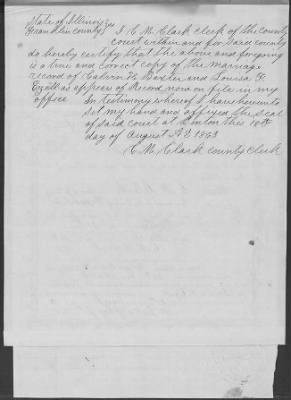 State of Illinois
Franklin county} I E. M. Clark clerk of the county
court within and for said county
do hereby certify that the above and forgoing
is a true and correct copy of the marriage
record of Calvin H. Baxter and Louisa
as appears of Record now on file in my
office In testimony whereof I have hereunto
set my hand and affixed the seal
of said court at Benton this 18th
day of August AD 1863
E. M. Clark county clerk